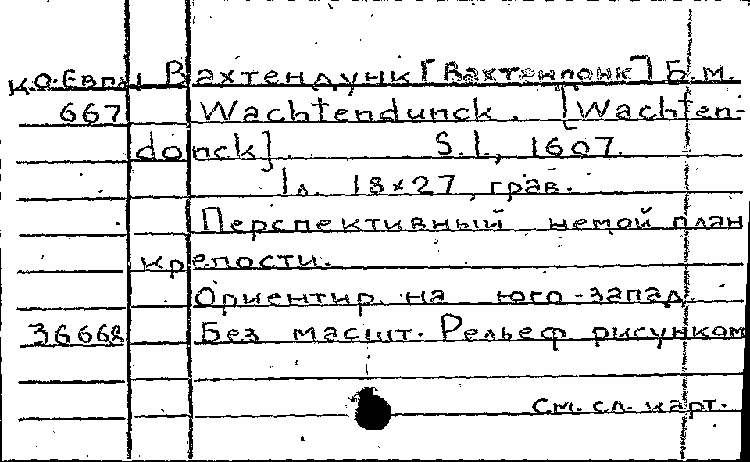 К.О.Евпы Вахтендунк [Вахтендонк] Б.м.
667 Wachtendunck. [Wachten-
donck] S.l., 1607.
1л. 18×27, грав.
Перспективный немой план
крепости.
Ориентир. на юго-запад.
36668 Без масшт. Рельеф рисунком
См. сл. карт.